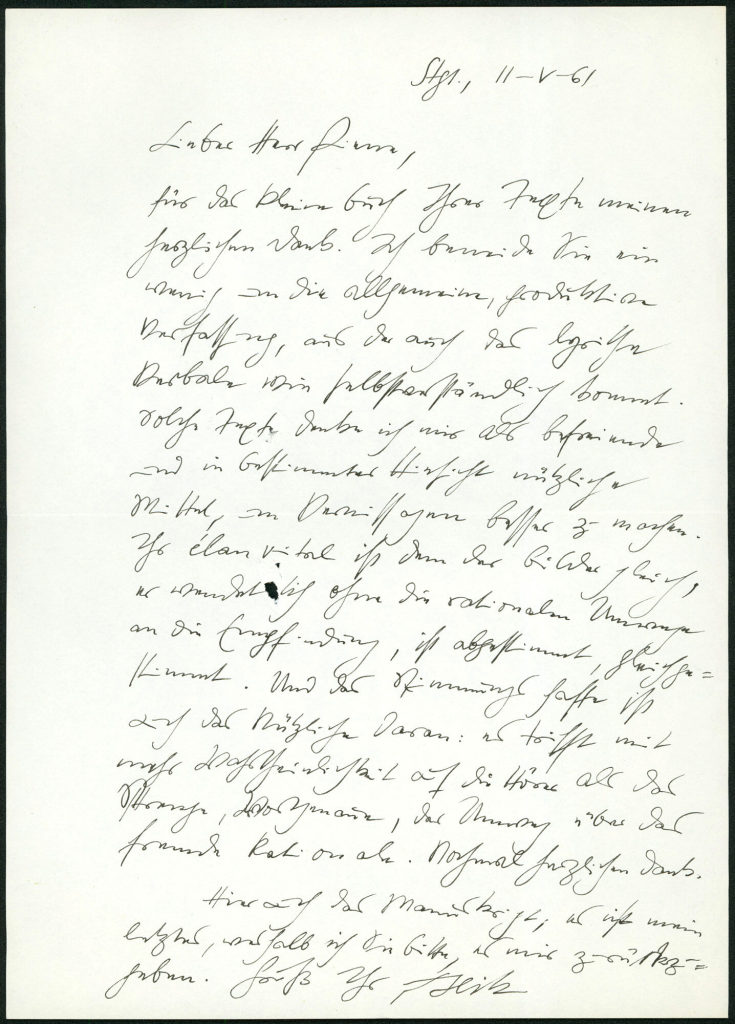 Stgt., 11-V-61
Lieber Herr
für das kleine Buch Ihrer Texte meinen
herzlichen Dank. Ich beneide Sie ein
wenig um die allgemeine, produktive
Verfassung, aus der auch das lyrische
Verbale wie selbstverständlich kommt.
Solche Texte denke ich mir als befreiende
und in bestimmter Hinsicht nützliche
Mittel, um Vernissagen besser zu machen.
Ihr élan vital ist dem der Bilder gleich,
er wendet sich ohne die rationalen Umwege
an die Empfindung, ist abgestimmt, gleichge=
stimmt. Und das Stimmungshafte ist
auch das Nützliche daran: es trifft mit
mehr Wahrscheinlichkeit auf die Hörer als das
Strenge, Wortgenaue, der Umweg über das
fremde Rationale. Nochmal herzlichen Dank.
Hier auch das Manuskript; es ist mein
letztes, weshalb ich Sie bitte, es mir zurückzu=
geben. Gruß Ihr